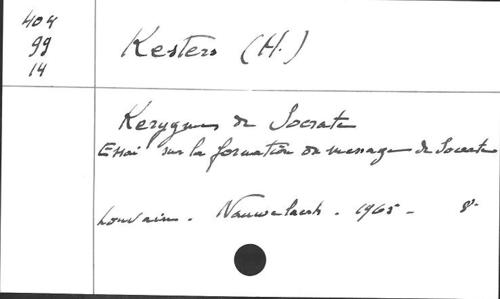 404
99
14
Kesters (H.)
Kerygmes de Socrate
Essai sur la formation du message de Socrate
Louvain. Nauwelaerts. 1965 - 8°.